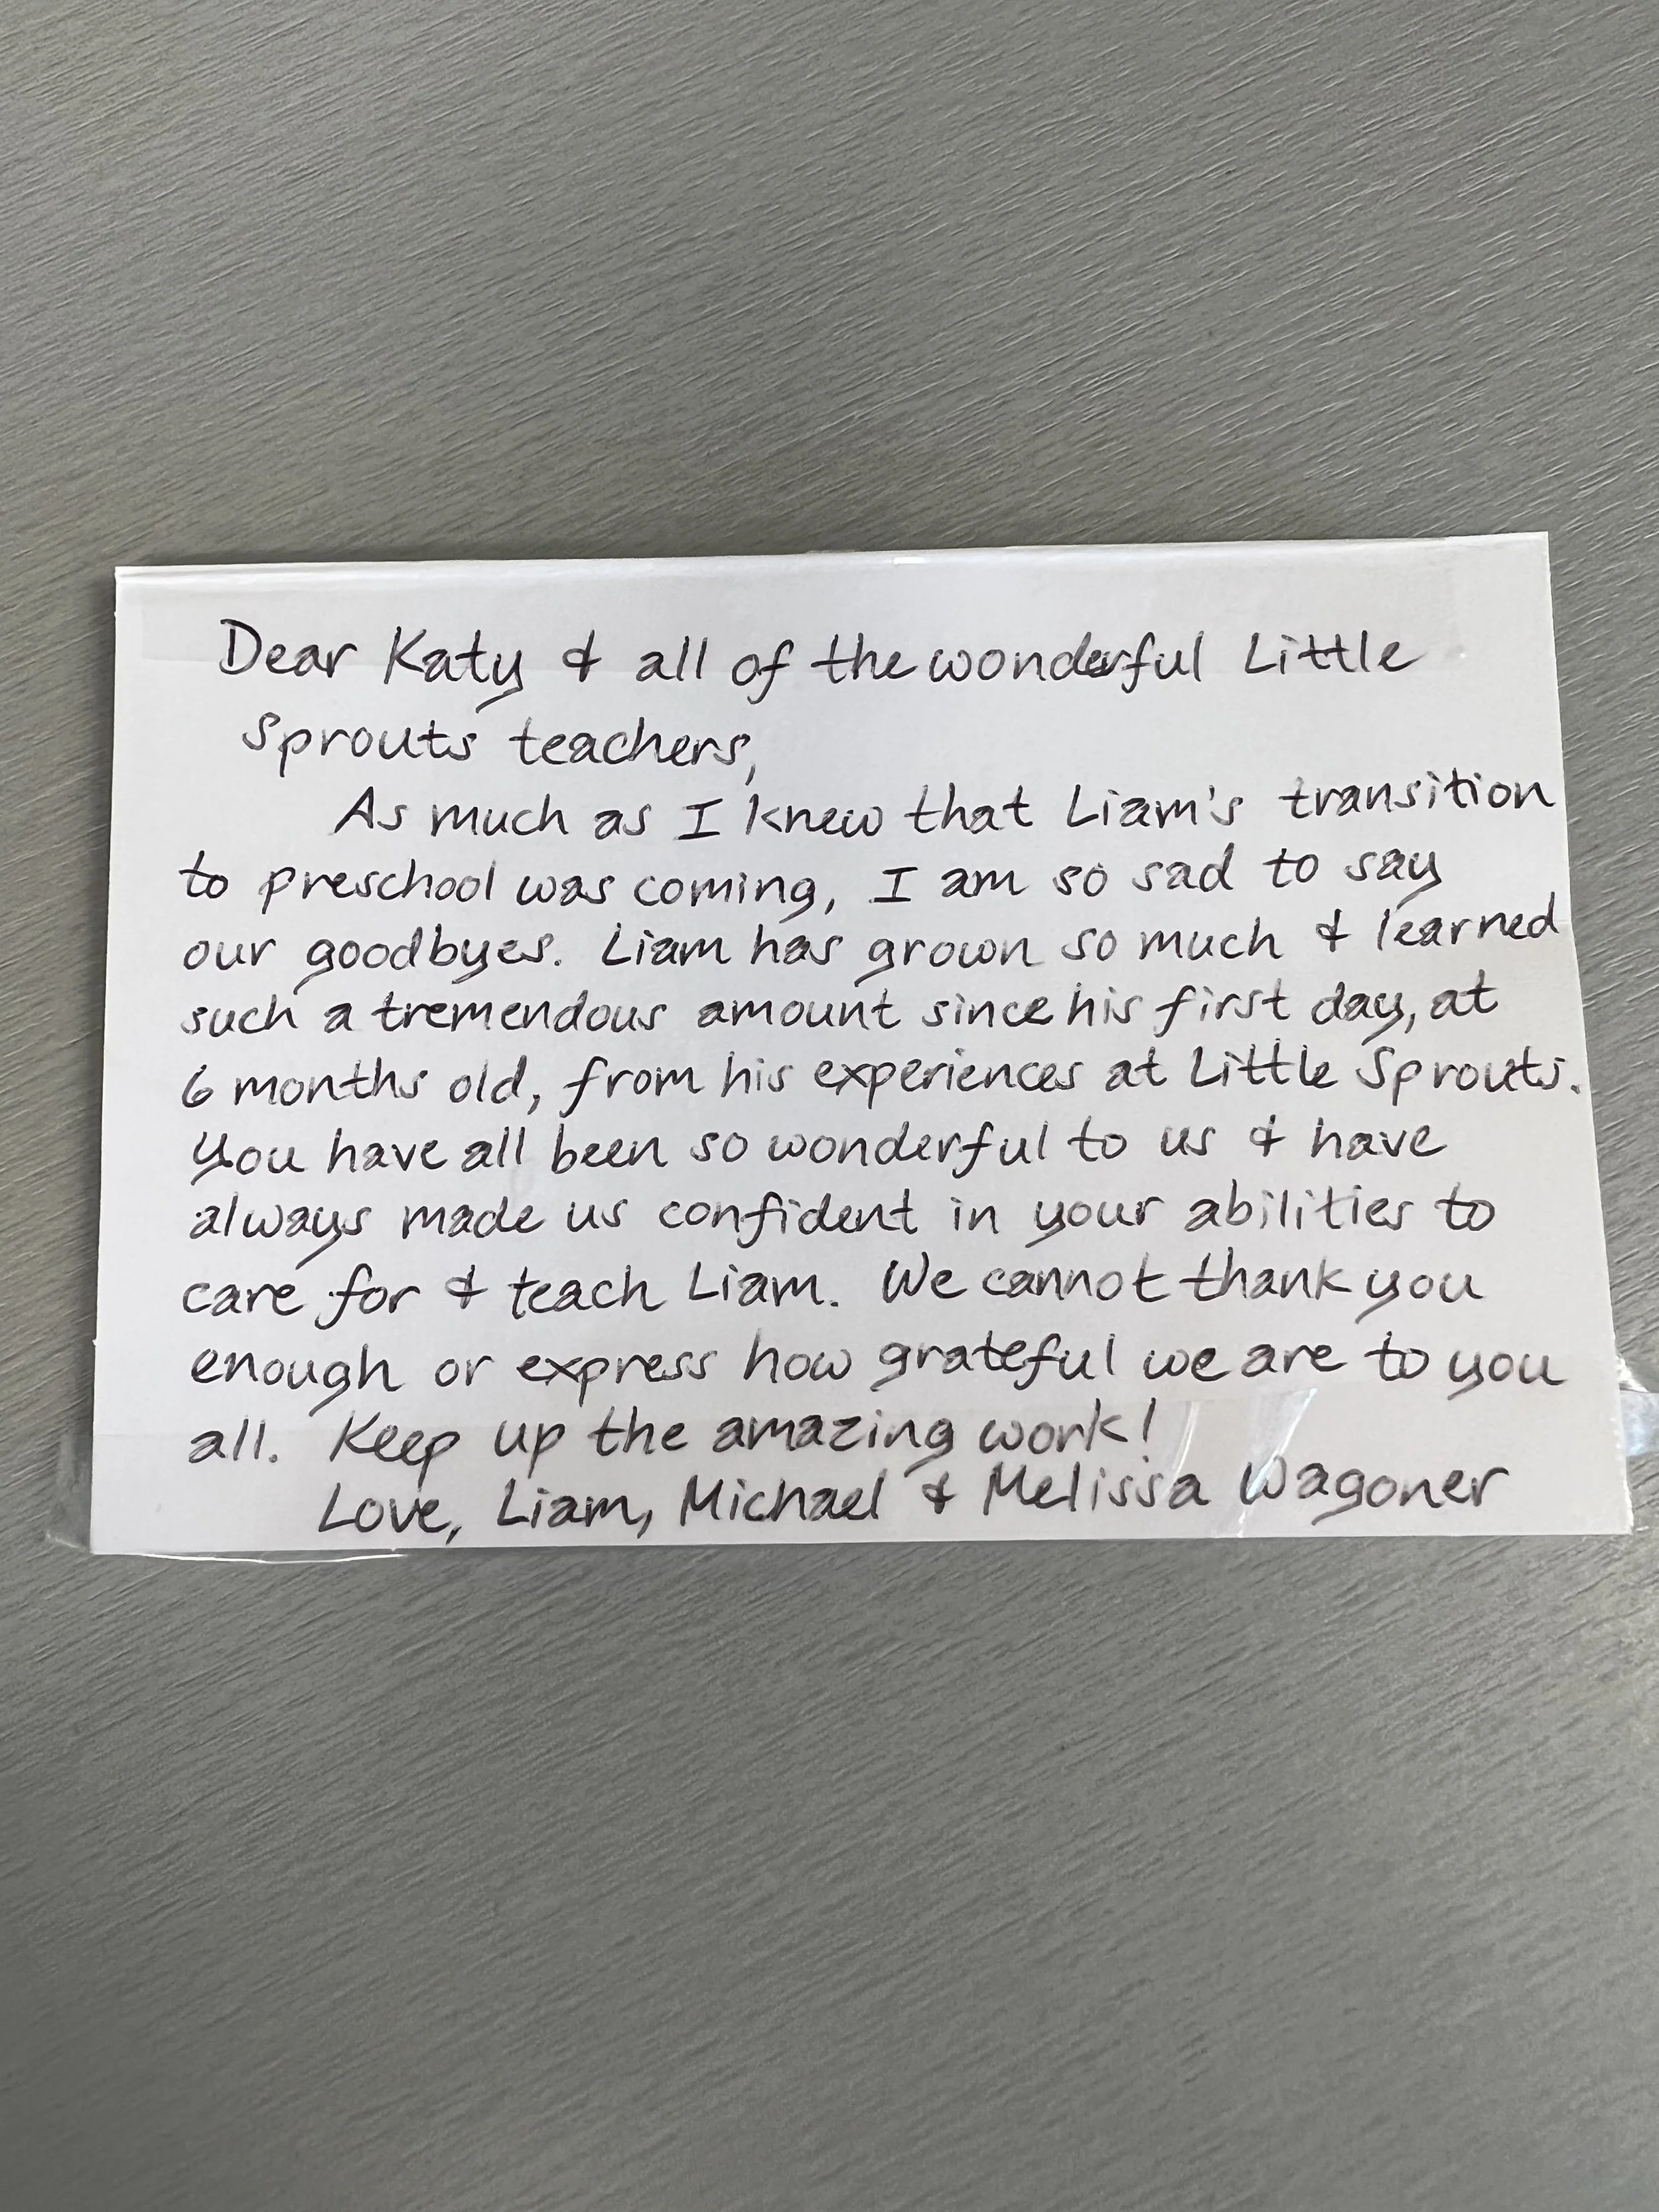 Dear Katy & all of the wonderful Little
Sprouts teachers,
As much as I knew that Liam's transition
to preschool was coming, I am so sad to say
our goodbyes. Liam has grown so much & learned
such a tremendous amount since his first day, at
6 months old, from his experiences at Little Sprouts.
You have all been so wonderful to us & have
always made us confident in your abilities to
care for & teach Liam. We cannot thank you
enough or express how grateful we are to you
all. Keep up the amazing work!
Love, Liam, Michael & Melissa Wagoner